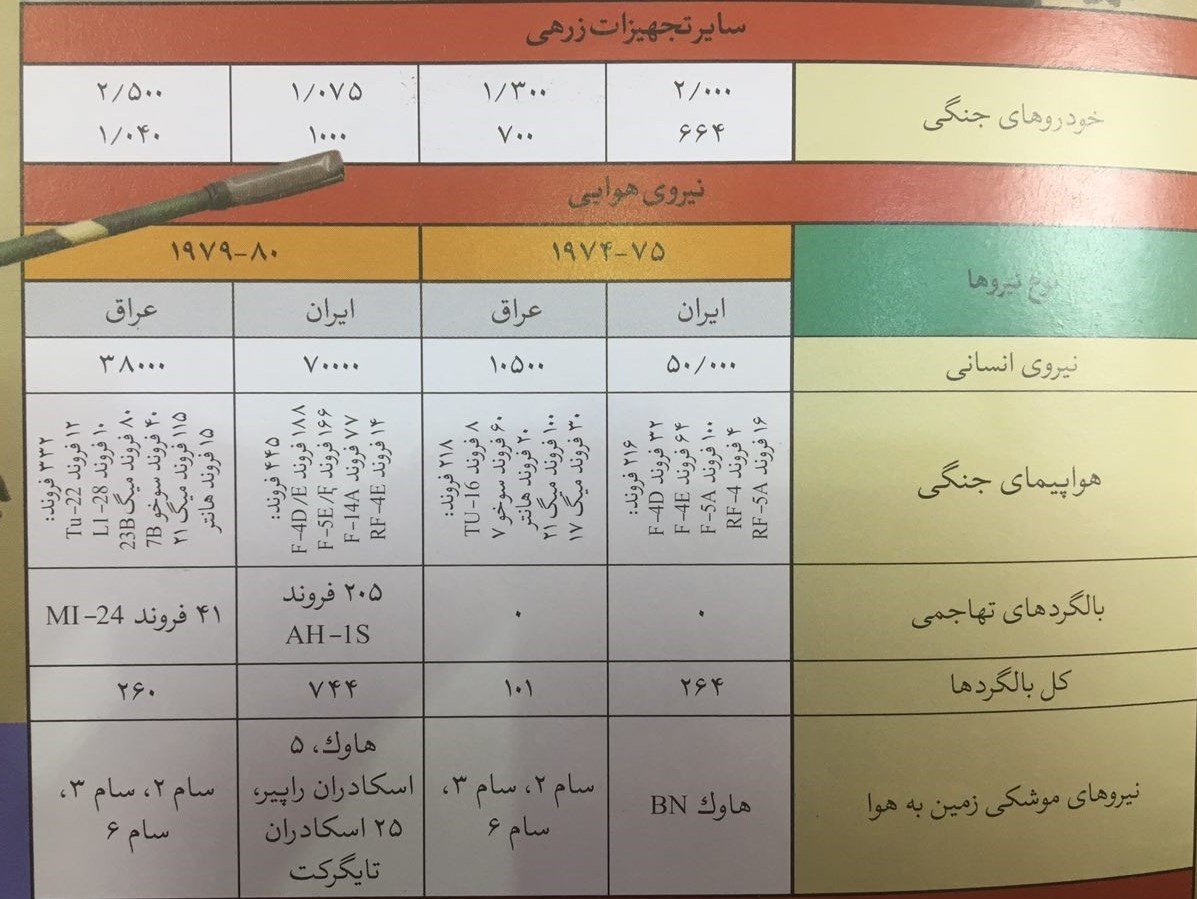 سایر تجهیزات زرهی
خودروهای جنگی
۲/۰۰۰
۶۶۴
۱/۳۰۰
۷۰۰
۱/۰۷۵
۱۰۰۰
۲/۵۰۰
۱/۰۴۰
نیروی هوایی
نوع نیروها
۱۹۷۴-۷۵
۱۹۷۹-۸۰
ایران
عراق
ایران
عراق
نیروی انسانی
۵۰/۰۰۰
۱۰۵۰۰
۷۰۰۰۰
۳۸۰۰۰
هواپیمای جنگی
۲۱۶ فروند:
۳۲ فروند F-4D
۶۴ فروند F-4E
۱۰۰ فروند F-5A
۴ فروند RF-4
۱۶ فروند RF-5A
۲۱۸ فروند:
۸ فروند TU-16
۶۰ فروند سوخو ۷
۲۰ فروند هانتر
۱۰۰ فروند میگ ۲۱
۳۰ فروند میگ ۱۷
۴۴۵ فروند:
۱۸۸ فروند F-4D/E
۱۶۶ فروند F-5E/F
۷۷ فروند F-14A
۱۴ فروند RF-4E
۳۳۲ فروند:
۱۲ فروند Tu-22
۱۰ فروند LI-28
۸۰ فروند میگ 23B
۴۰ فروند سوخو 7B
۱۱۵ فروند میگ ۲۱
۱۵ فروند هانتر
بالگردهای تهاجمی
۰
۰
۲۰۵ فروند
AH-1S
۴۱ فروند MI-24
کل بالگردها
۲۶۴
۱۰۱
۷۴۴
۲۶۰
نیروهای موشکی زمین به هوا
هاوك BN
سام ۲، سام ۳،
سام ۶
هاوك، ۵
اسکادران راپیر،
۲۵ اسکادران
تایگرکت
سام ۲، سام ۳،
سام ۶